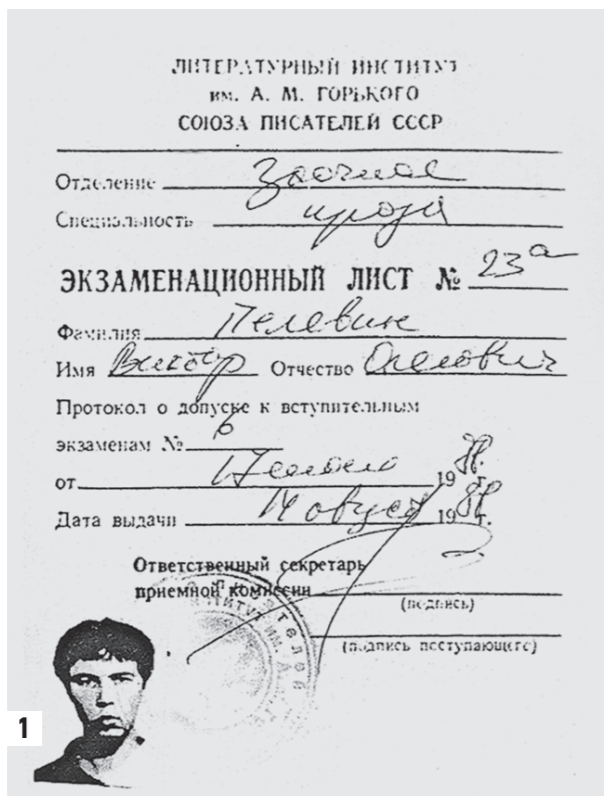 ЛИТЕРАТУРНЫЙ ИНСТИТУТ
им. А. М. ГОРЬКОГО
СОЮЗА ПИСАТЕЛЕЙ СССР
Отделение Заочное
Специальность проза
ЭКЗАМЕНАЦИОННЫЙ ЛИСТ № 23а
Фамилия Пелевин
Имя Виктор Отчество Олегович
Протокол о допуске к вступительным
экзаменам № 6
от 17 июня 1988 г.
Дата выдачи 14 август 1988 г.
Ответственный секретарь
приемной комиссии
(подпись)
(подпись поступающего)
1